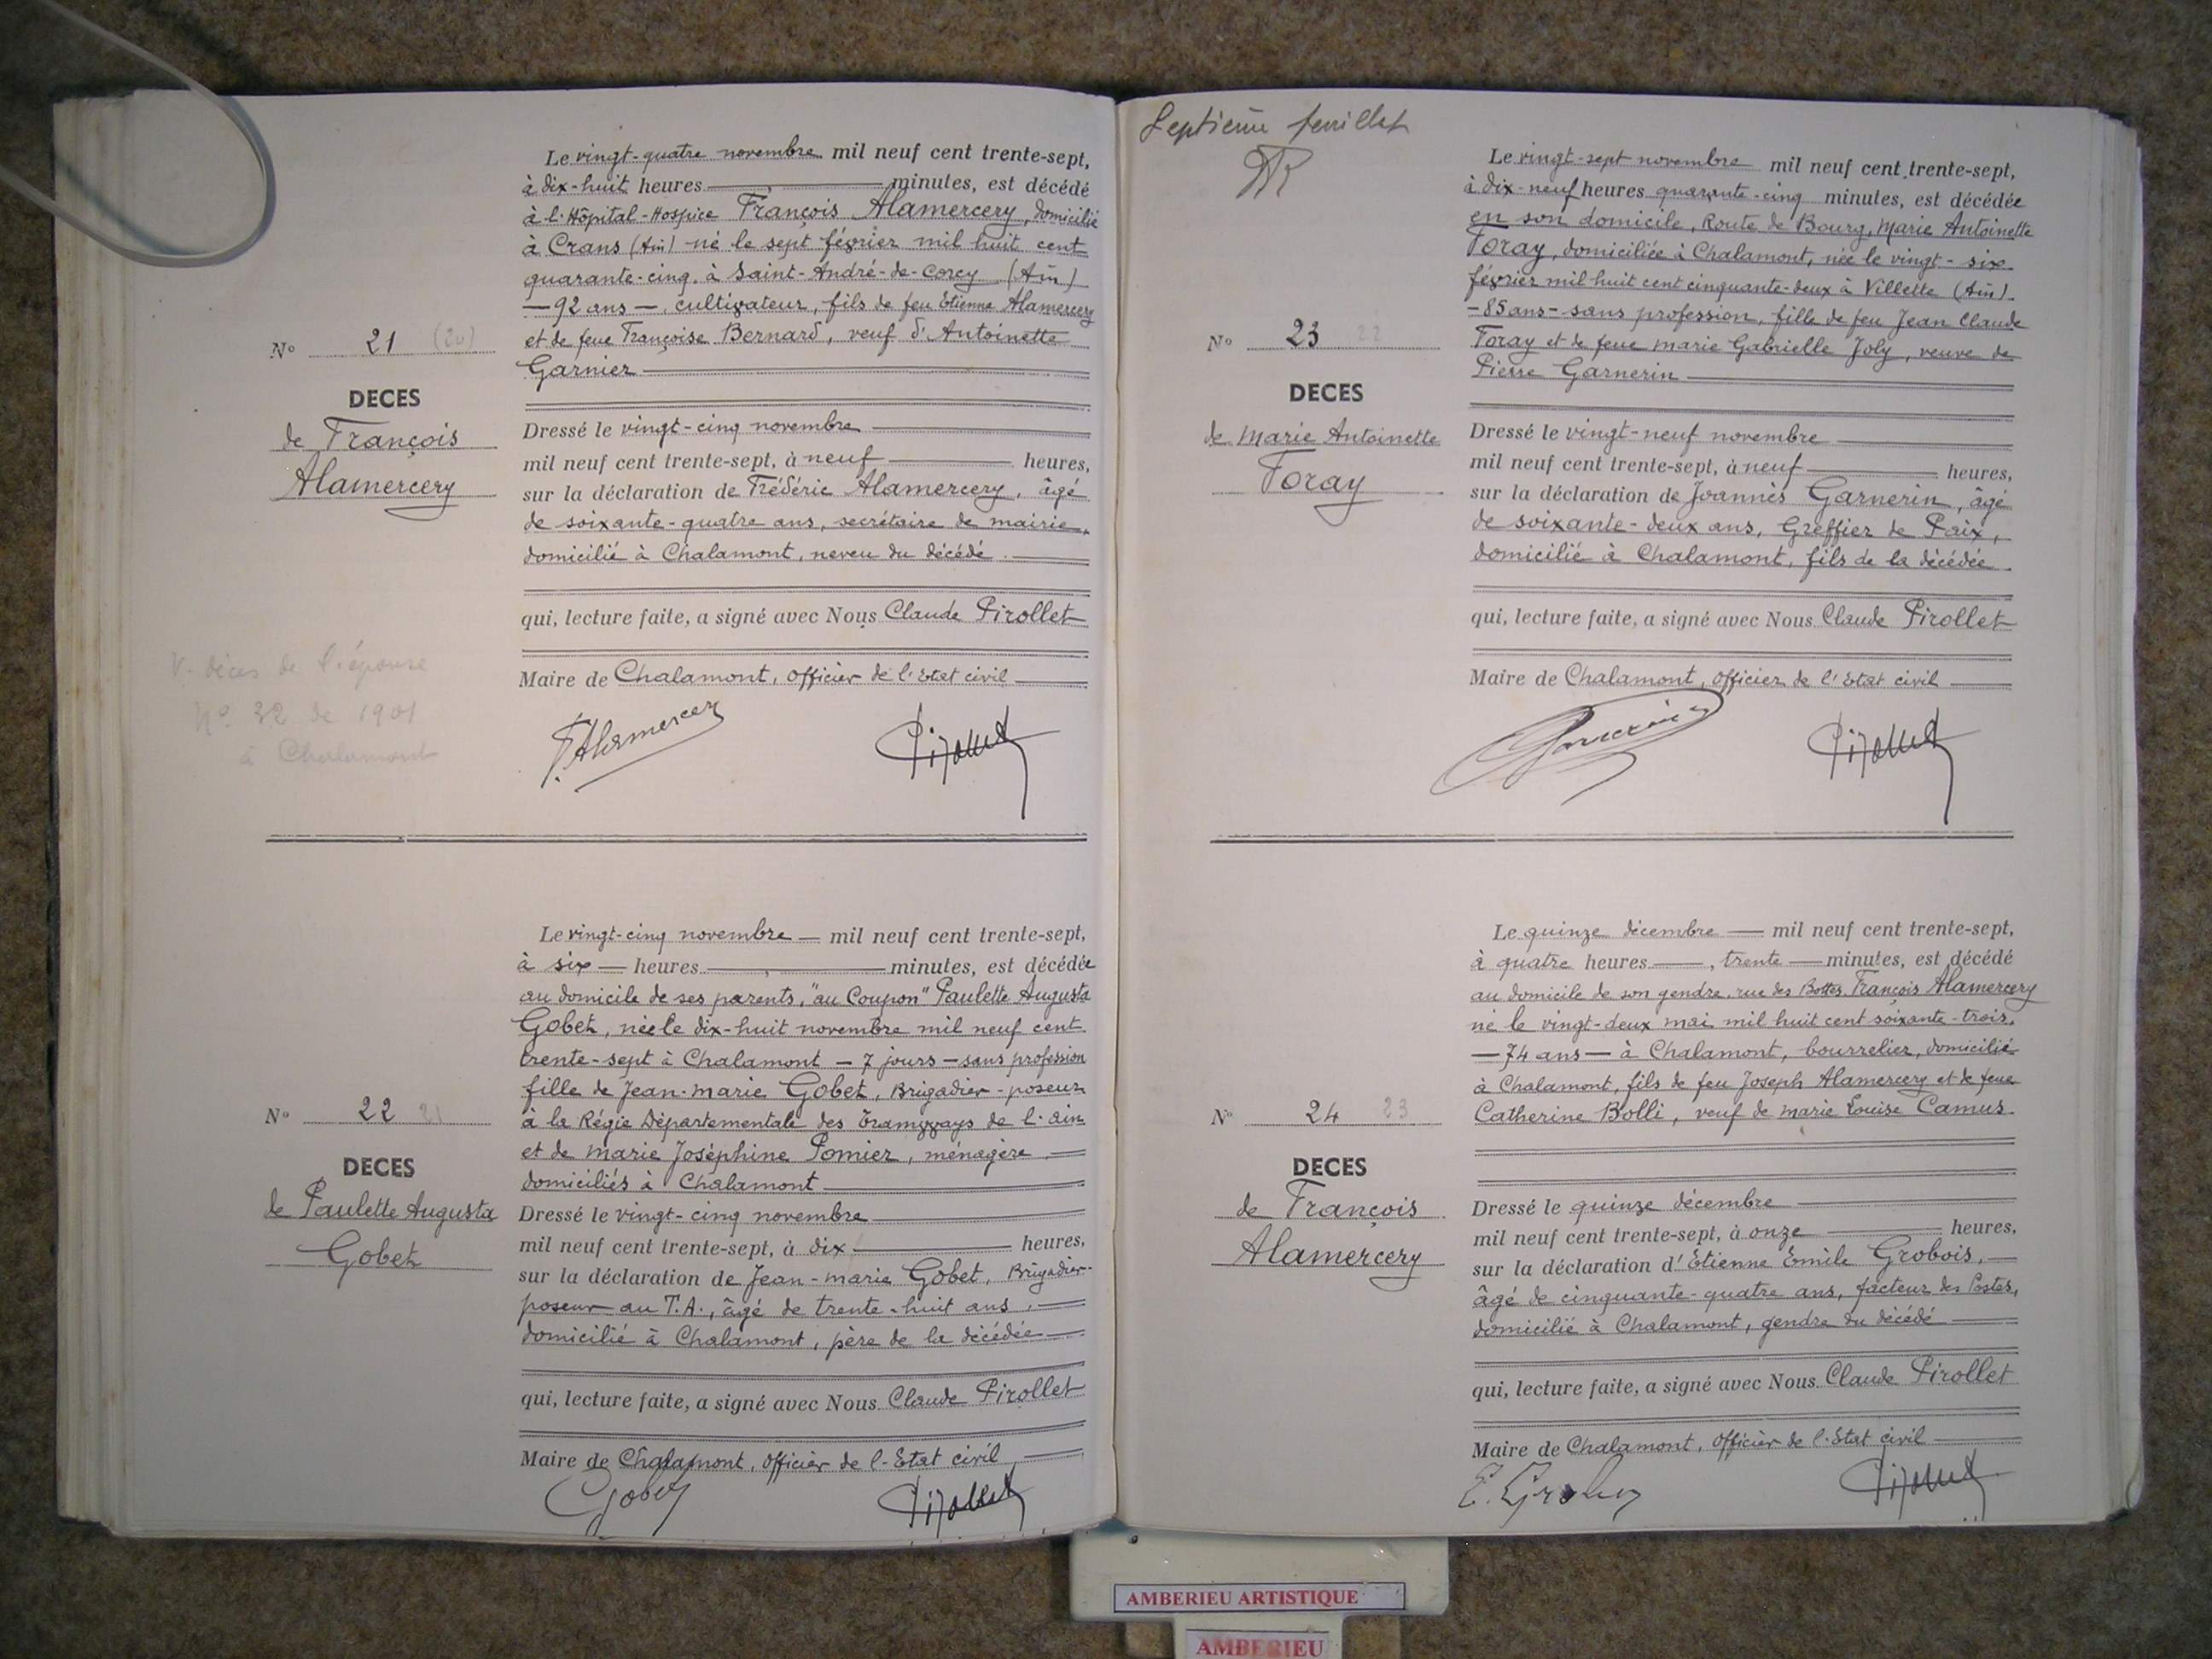 Le vingt-quatre novembre mil neuf cent trente-sept,
à dix-huit heures minutes, est décédé
à l'Hôpital-Hospice François Alamercery, domicilié
à Crans (Ain) né le sept février mil huit cent
quarante-cinq à Saint-André-de-Corcy (Ain)
— 92 ans —, cultivateur, fils de feu Etienne Alamercery
et de feue Françoise Bernard, veuf d'Antoinette
Garnier
N° 21 (20)
DECES
de François
Alamercery
Dressé le vingt-cinq novembre
mil neuf cent trente-sept, à neuf heures,
sur la déclaration de Frédéric Alamercery, âgé
de soixante-quatre ans, secrétaire de mairie,
domicilié à Chalamont, neveu du décédé.
qui, lecture faite, a signé avec Nous Claude Pirollet
Maire de Chalamont, Officier de l'Etat civil
V. décès de l'épouse
N° 32 de 1901
à Chalamont
F. Alamercery
Pirollet
Le vingt-cinq novembre — mil neuf cent trente-sept,
à six — heures minutes, est décédée
au domicile de ses parents, "au Coupon" Paulette Augusta
Gobet, née le dix-huit novembre mil neuf cent
trente-sept à Chalamont — 7 jours — sans profession
fille de Jean-Marie Gobet, Brigadier-poseur
à la Régie Départementale des Tramways de l'Ain
et de Marie Joséphine Pomier, ménagère,
domiciliés à Chalamont
N° 22 21
DECES
de Paulette Augusta
Gobet
Dressé le vingt-cinq novembre
mil neuf cent trente-sept, à dix heures,
sur la déclaration de Jean-Marie Gobet, Brigadier-
poseur au T.A., âgé de trente-huit ans,
domicilié à Chalamont, père de la décédée
qui, lecture faite, a signé avec Nous Claude Pirollet
Maire de Chalamont, Officier de l'Etat civil
Gobet
Pirollet
Septième feuillet
Le vingt-sept novembre mil neuf cent trente-sept,
à dix-neuf heures quarante-cinq minutes, est décédée
en son domicile, Route de Bourg, Marie Antoinette
Foray, domiciliée à Chalamont, née le vingt-six
février mil huit cent cinquante-deux à Villette (Ain).
- 85 ans - sans profession, fille de feu Jean Claude
Foray et de feue Marie Gabrielle Joly, veuve de
Pierre Garnerin
N° 23 22
DECES
de Marie Antoinette
Foray
Dressé le vingt-neuf novembre
mil neuf cent trente-sept, à neuf heures,
sur la déclaration de Joannès Garnerin, âgé
de soixante-deux ans, Greffier de Paix,
domicilié à Chalamont, fils de la décédée.
qui, lecture faite, a signé avec Nous Claude Pirollet
Maire de Chalamont, Officier de l'Etat civil
Garnerin
Pirollet
Le quinze décembre — mil neuf cent trente-sept,
à quatre heures —, trente — minutes, est décédé
au domicile de son gendre, rue des Bottes, François Alamercery
né le vingt-deux mai mil huit cent soixante-trois,
— 74 ans — à Chalamont, bourrelier, domicilié
à Chalamont, fils de feu Joseph Alamercery et de feue
Catherine Bolli, veuf de Marie Louise Camus.
N° 24 23
DECES
de François
Alamercery
Dressé le quinze décembre
mil neuf cent trente-sept, à onze heures,
sur la déclaration d'Etienne Emile Grobois,
âgé de cinquante-quatre ans, facteur des Postes,
domicilié à Chalamont, gendre du décédé
qui, lecture faite, a signé avec Nous Claude Pirollet
Maire de Chalamont, Officier de l'Etat civil
E. Grobois
Pirollet
AMBERIEU ARTISTIQUE
AMBERIEU